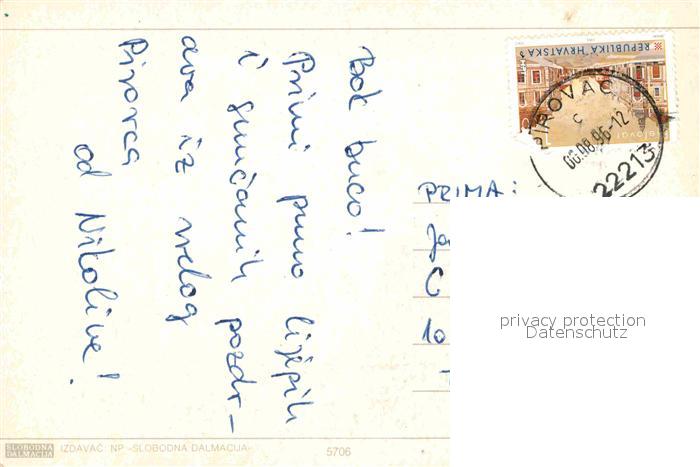 Bok buco!
Primi puno lijepih
i sunčanih pozdr-
ava iz vrelog
Pirovca
od Nikoline!
REPUBLIKA HRVATSKA
PIROVAC
c
06.08.96-12
22213
PRIMA:
10
privacy protection
Datenschutz
SLOBODNA
DALMACIJA
IZDAVAČ: NP «SLOBODNA DALMACIJA»
5706